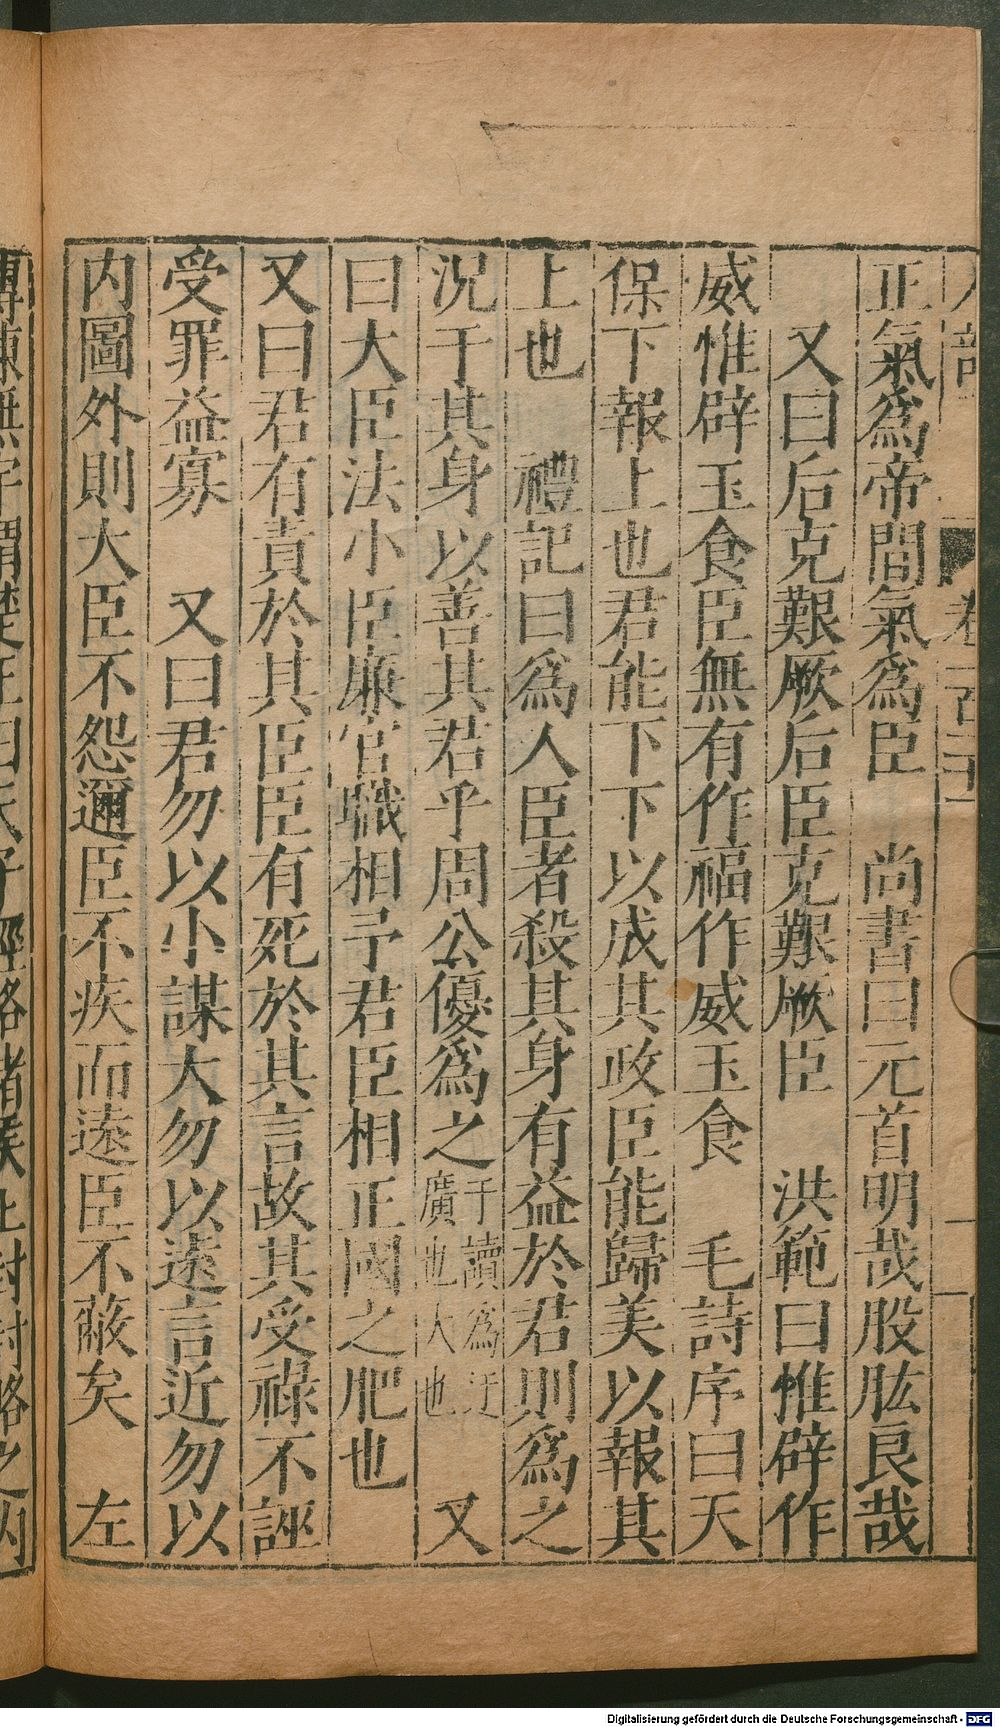 正氣爲帝間氣爲臣　尚書曰元首明哉股肱良哉
又曰后克艱厥后臣克艱厥臣　洪範曰惟辟作
威惟辟玉食臣無有作福作威玉食　毛詩序曰天
保下報上也君能下下以成其政臣能歸美以報其
上也　禮記曰爲人臣者殺其身有益於君則爲之
況于其身以善其君乎周公優爲之于讀爲迂廣也大也　又
曰大臣法小臣廉官職相予君臣相正國之肥也
又曰君有責於其臣臣有死於其言故其受祿不誣
受罪益寡　又曰君勿以小謀大勿以遠言近勿以
內圖外則大臣不怨邇臣不疾而遠臣不蔽矣　左
Digitalisierung gefördert durch die Deutsche Forschungsgemeinschaft - DFG